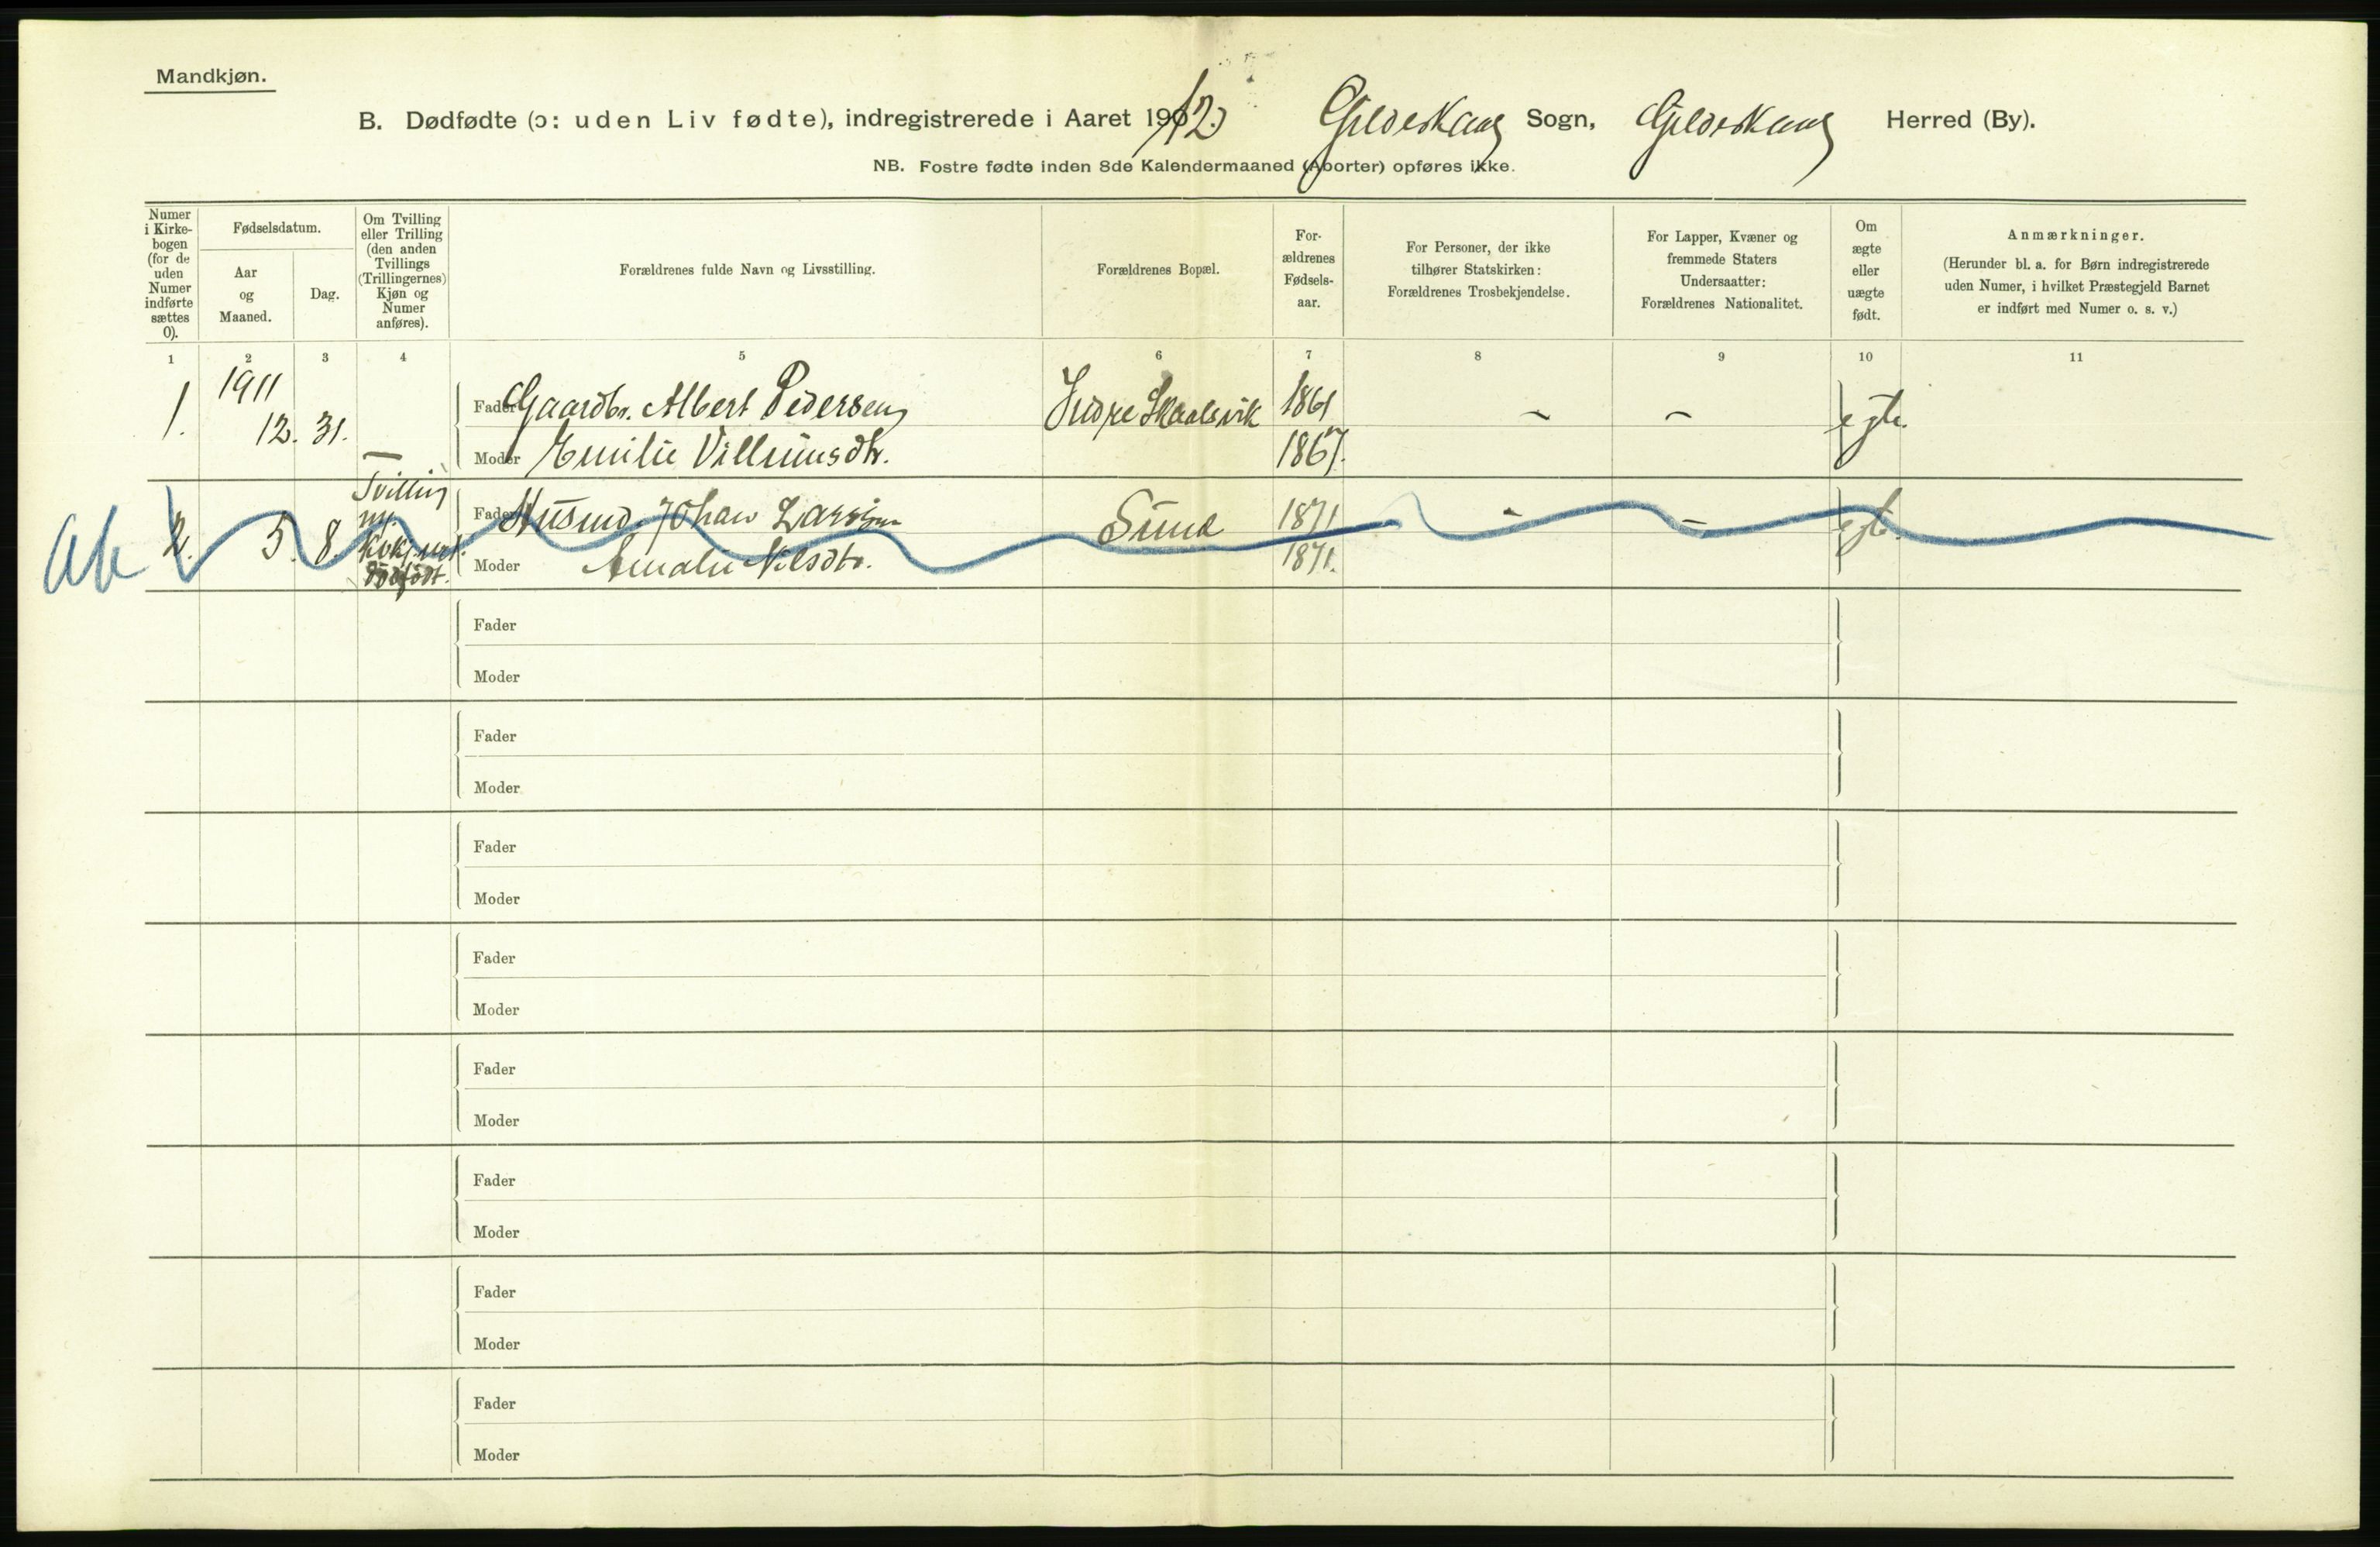 Mandkjøn.
B. Dødfødte (ɔ: uden Liv fødte), indregistrerede i Aaret 1912. Gildeskaag Sogn, Gildeskaag Herred (By).
NB. Fostre fødte inden 8de Kalendermaaned (Aborter) opføres ikke.
Numer i Kirkebogen (for de uden Numer indførte sættes 0).
Fødselsdatum.
Aar og Maaned.
Dag.
Om Tvilling eller Trilling (den anden Tvillings (Trillingernes) Kjøn og Numer anføres).
Forældrenes fulde Navn og Livsstilling.
Forældrenes Bopæl.
Forældrenes Fødselsaar.
For Personer, der ikke tilhører Statskirken: Forældrenes Trosbekjendelse.
For Lapper, Kvæner og fremmede Staters Undersaatter: Forældrenes Nationalitet.
Om ægte eller uægte født.
Anmærkninger.
(Herunder bl. a. for Børn indregistrerede uden Numer, i hvilket Præstegjeld Barnet er indført med Numer o. s. v.)
1 2 3 4 5 6 7 8 9 10 11
1. 1911 12. 31. — Fader Gaardbr. Albert Pedersen Indre Skaalsvik 1861 - - egte.
Moder Emilie Villumsdtr. 1867.
2. 5. 8. Tvilling m. Kvkj. dødfødt. Fader Husmd. Johan Larsen Sund 1871 - - egte.
Moder Amalie Nilsdtr. 1871.
Fader
Moder
Fader
Moder
Fader
Moder
Fader
Moder
Fader
Moder
Fader
Moder
Fader
Moder
Fader
Moder